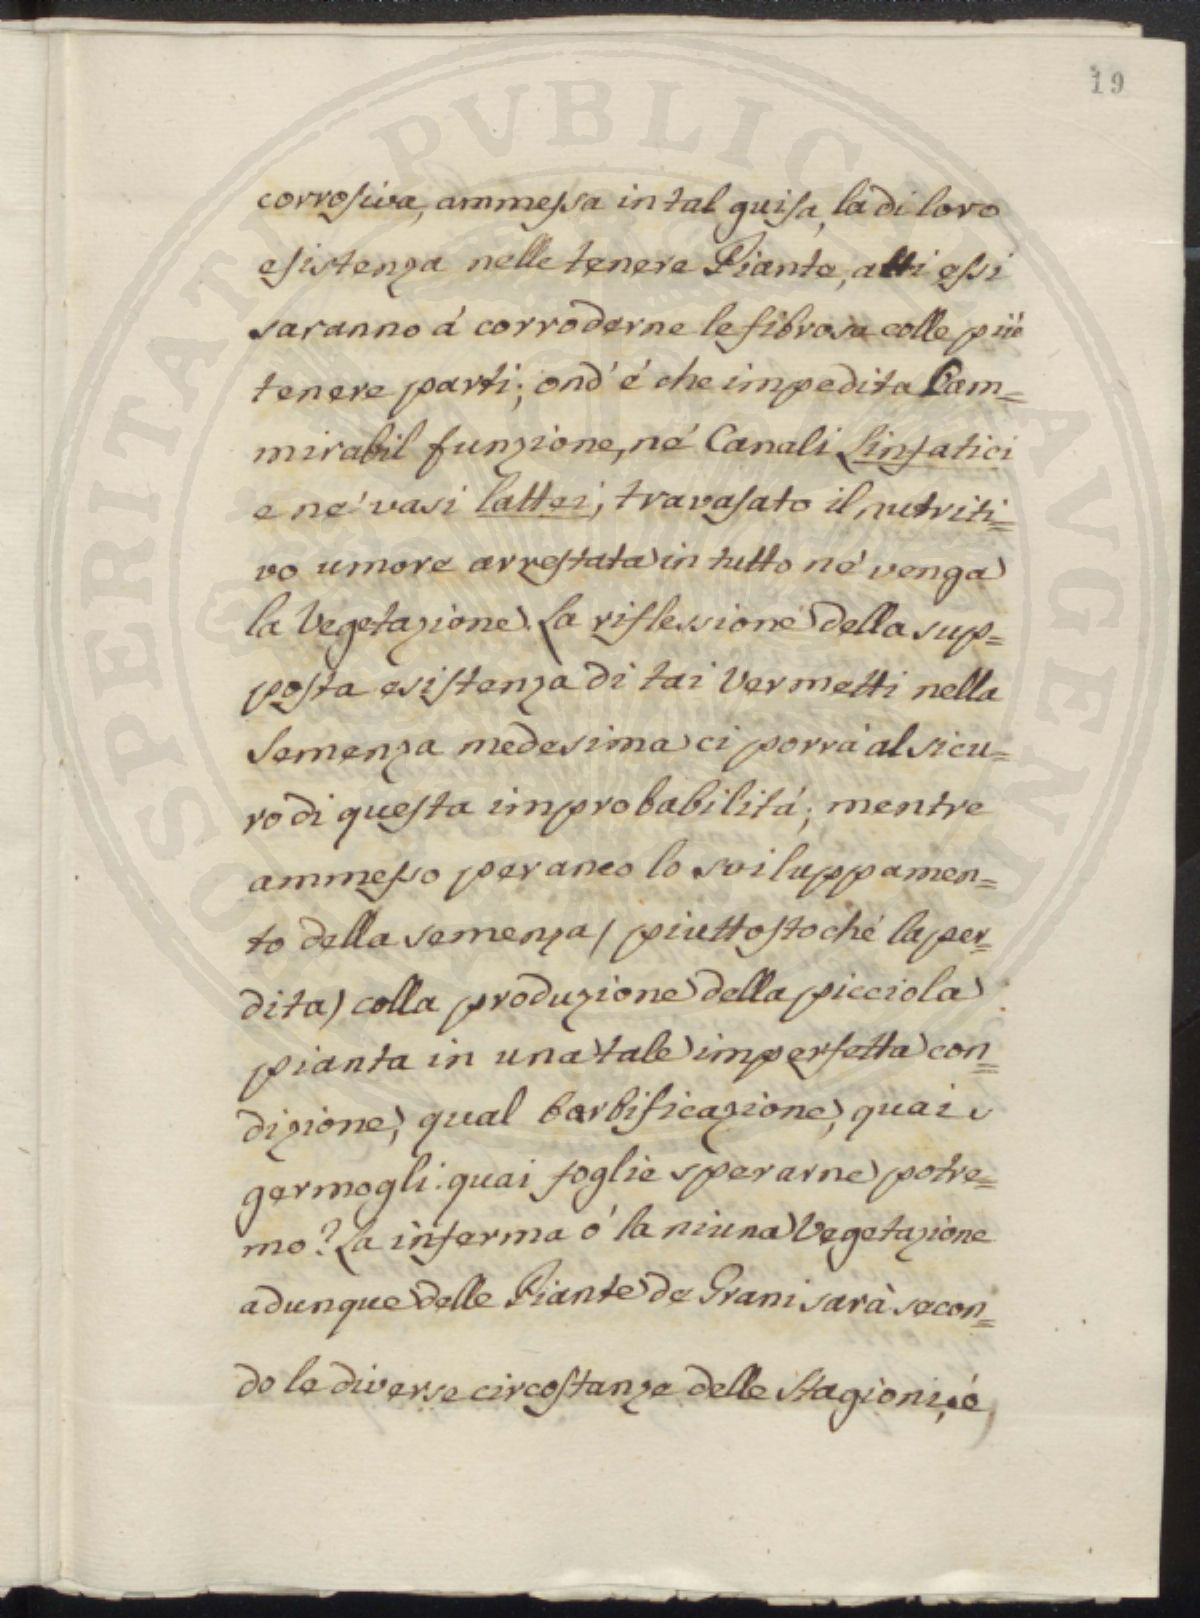 19
corrosiva, ammessa in tal guisa, la di loro
esistenza nelle tenere Piante, atti essi
saranno á corroderne le fibrose colle più
tenere parti; ond' é che impedita l'am=
mirabil funzione, né Canali Linfatici
e né vasi lattei, travasato il nutriti=
vo umore arrestata in tutto né venga
la Vegetazione. La riflessione della sup=
posta esistenza di tai Vermetti nella
Semenza medesima ci porrà al sicu=
ro di questa improbabilitá; mentre
ammesso per anco lo sviluppamen=
to della semenza / piuttostoché la per=
dita) colla produzione della picciola
pianta in una tale imperfetta con=
dizione, qual barbificazione, quai
germogli: quai foglie sperarne potre=
mo? La inferma ó la niuna Vegetazione
adunque delle Piante de Grani sarà secon=
do le diverse circostanze delle Stagioni, é
PROSPERITATI PVBLICAE AVGENDAE